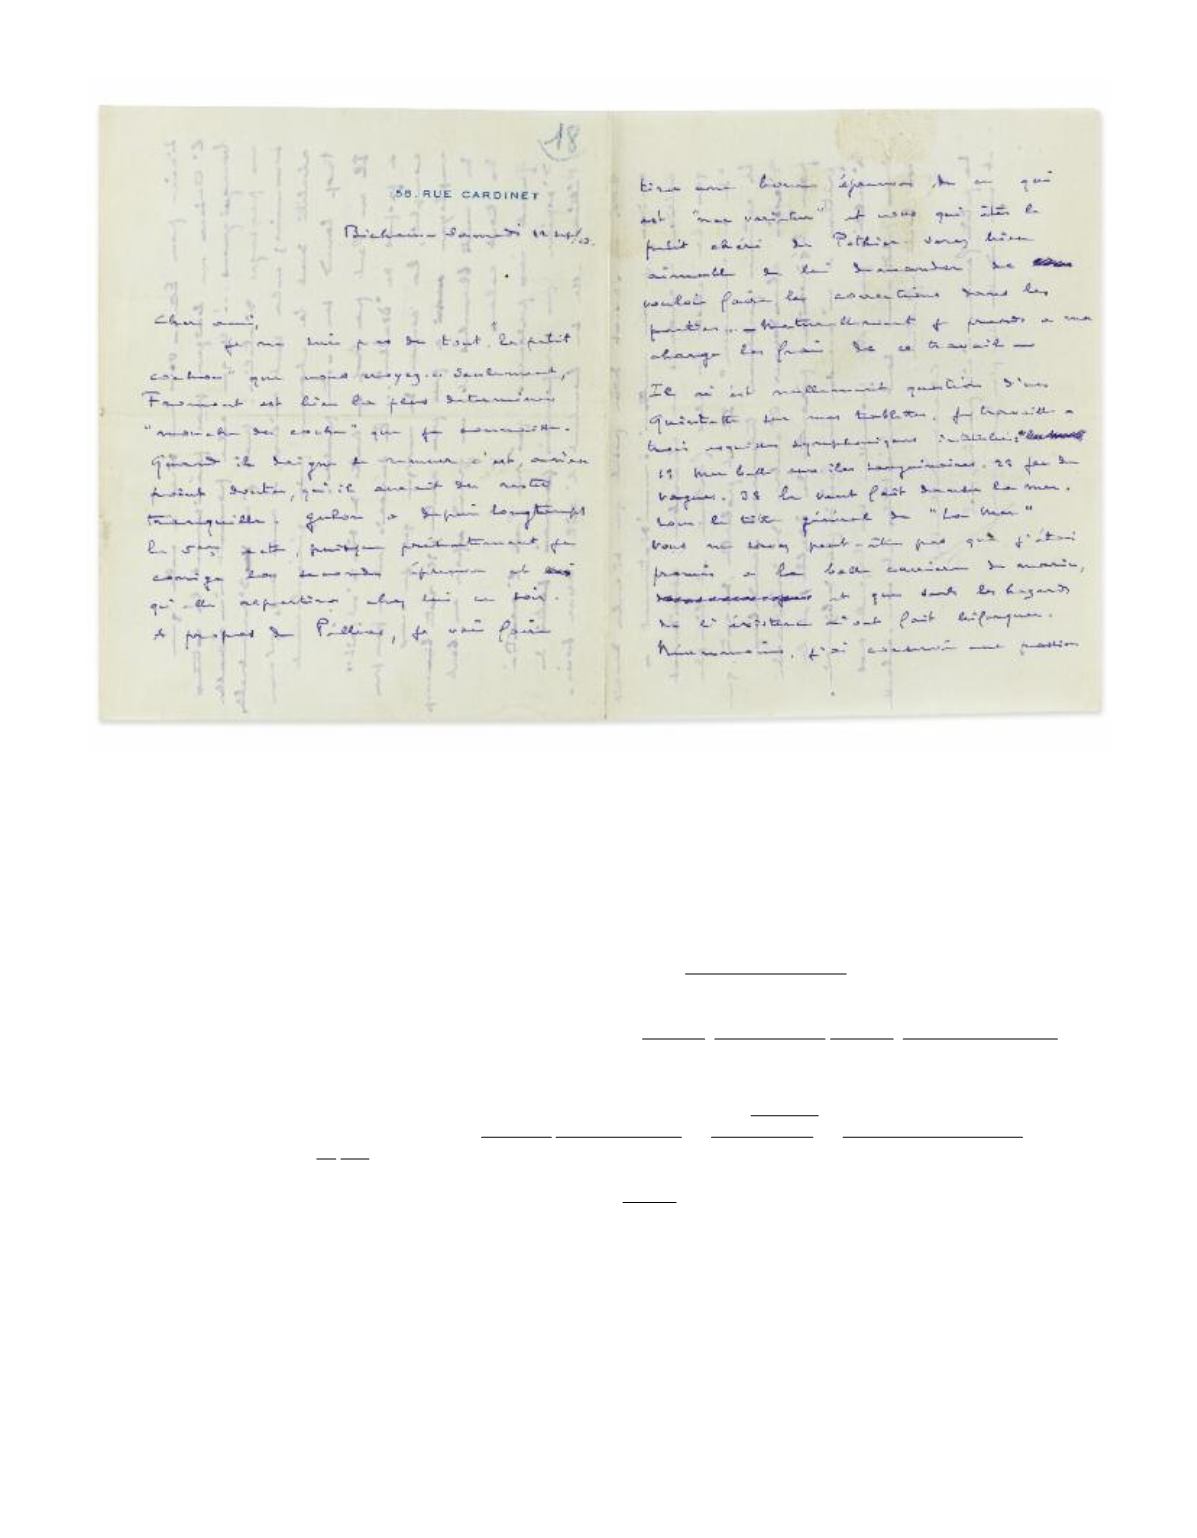 18
58. RUE CARDINET
Bichain - Samedi 12 sept/03.
Cher ami,
Je ne suis pas du tout "le petit
cochon" que vous croyez.. Seulement,
Fromont est bien la plus déterminée
"mouche du coche" que je connaisse.
Quand il daigne se remuer c'est, à n'en
point douter, qu'il aurait dû rester
tranquille. Gulon a depuis longtemps
le 5me acte, puisque présentement je
corrige les secondes épreuves et
qu'elles repartira chez lui ce soir.
A propos de Pelléas, je vais faire
tirer une bonne épreuve de ce qui
est "ne varietur" et vous qui êtes le
petit chéri de Pothier serez bien
aimable de lui demander de
vouloir faire les corrections dans les
parties.. – Naturellement je prends à ma
charge les frais de ce travail –
Il n'est nullement question d'un
Quintette sur mes tablettes. Je travaille à
trois esquisses symphoniques intitulées:
1º Mer belle aux îles sanguinaires. 2º jeu de
vagues. 3º le vent fait danser la mer.
sous le titre général de "La Mer"
Vous ne savez peut-être pas que j'étais
promis à la belle carrière de marin,
et que seuls les hazards
de l'existence m'ont fait bifurquer.
Néanmoins, j'ai conservé une passion